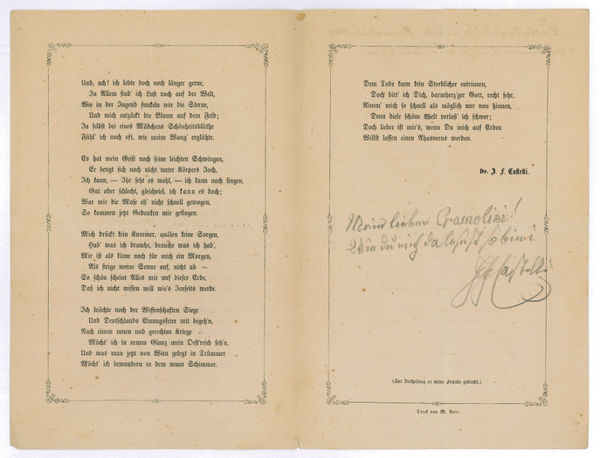 Und, och! ich lebte doch noch länger gerne,
Zu Allem find' ich Lust noch auf der Welt,
Wie in der Jugend funkeln mir die Sterne,
Und mich entzückt die Blume auf dem Feld;
Ja selbst bei eines Mädchens Schönheitsblüthe
Fühl' ich noch oft, wie meine Wang' erglühte.
Es hat mein Geist noch seine leichten Schwingen,
Er beugt sich noch nicht unter Körpers Joch,
Ich kann, — Ihr seht es wohl, — ich kann noch singen,
Gut oder schlecht, gleichviel, ich kann es doch;
War mir die Muse oh' nicht schnell gewogen,
So kommen jetzt Gedanken mir geflogen.
Mich drückt kein Kummer, quälen keine Sorgen,
Hab' was ich brauche, brauche was ich hab',
Mir ist als käme noch für mich ein Morgen,
Als steige meine Sonne auf, nicht ab —
So schön scheint Alles mir auf dieser Erde,
Daß ich nicht wissen will wie's Jenseits werde.
Ich möchte noch der Wissenschaften Siege
Und Deutschlands Einungsfeier mit begeh'n,
Nach einem neuen und gerechten Kriege
Möcht' ich in neuem Glanz mein Oest'reich seh'n,
Und was man jetzt von Wien gelegt in Trümmer
Möcht' ich bewundern in dem neuen Schimmer.
Dem Tode kann kein Sterblicher entrinnen,
Doch bitt' ich Dich, barmherz'ger Gott, recht sehr,
Nimm' mich so schnell als möglich nur von hinnen,
Denn diese schöne Welt verlass' ich schwer;
Doch lieber ist mir's, wenn Du mich auf Erden
Willst lassen einen Ahasverus werden.
Dr. J. F. Castelli.
Mein lieber Pramolini!
Wie du mich da lesest so bin i
JF Castelli
(Zur Vertheilung an meine Freunde gedruckt.)
Druck von M. Auer.